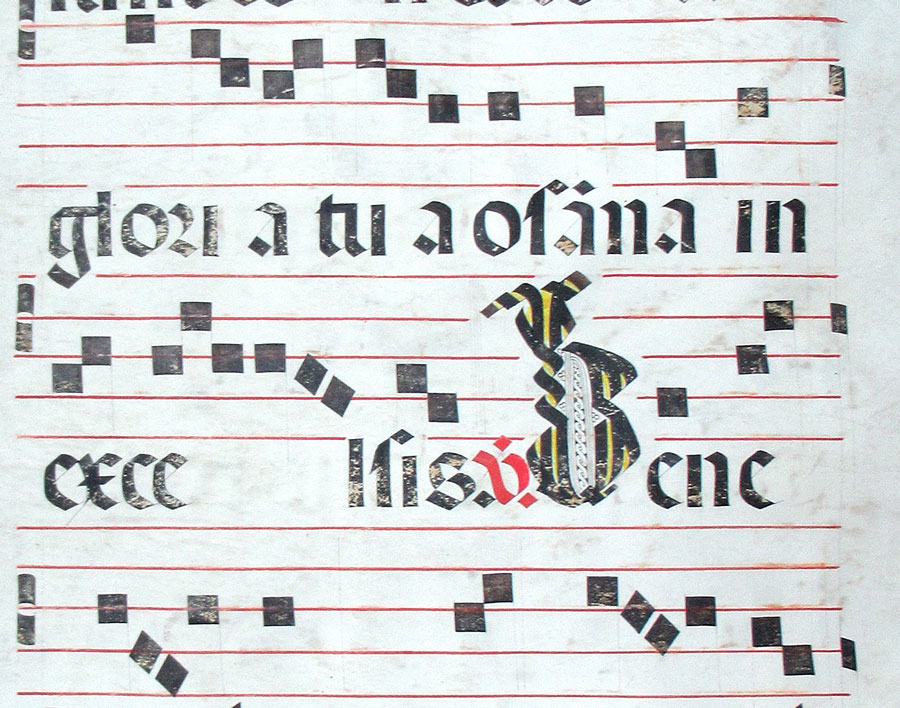 glori a tu a osāna in
exce lsis. ℣. Bene